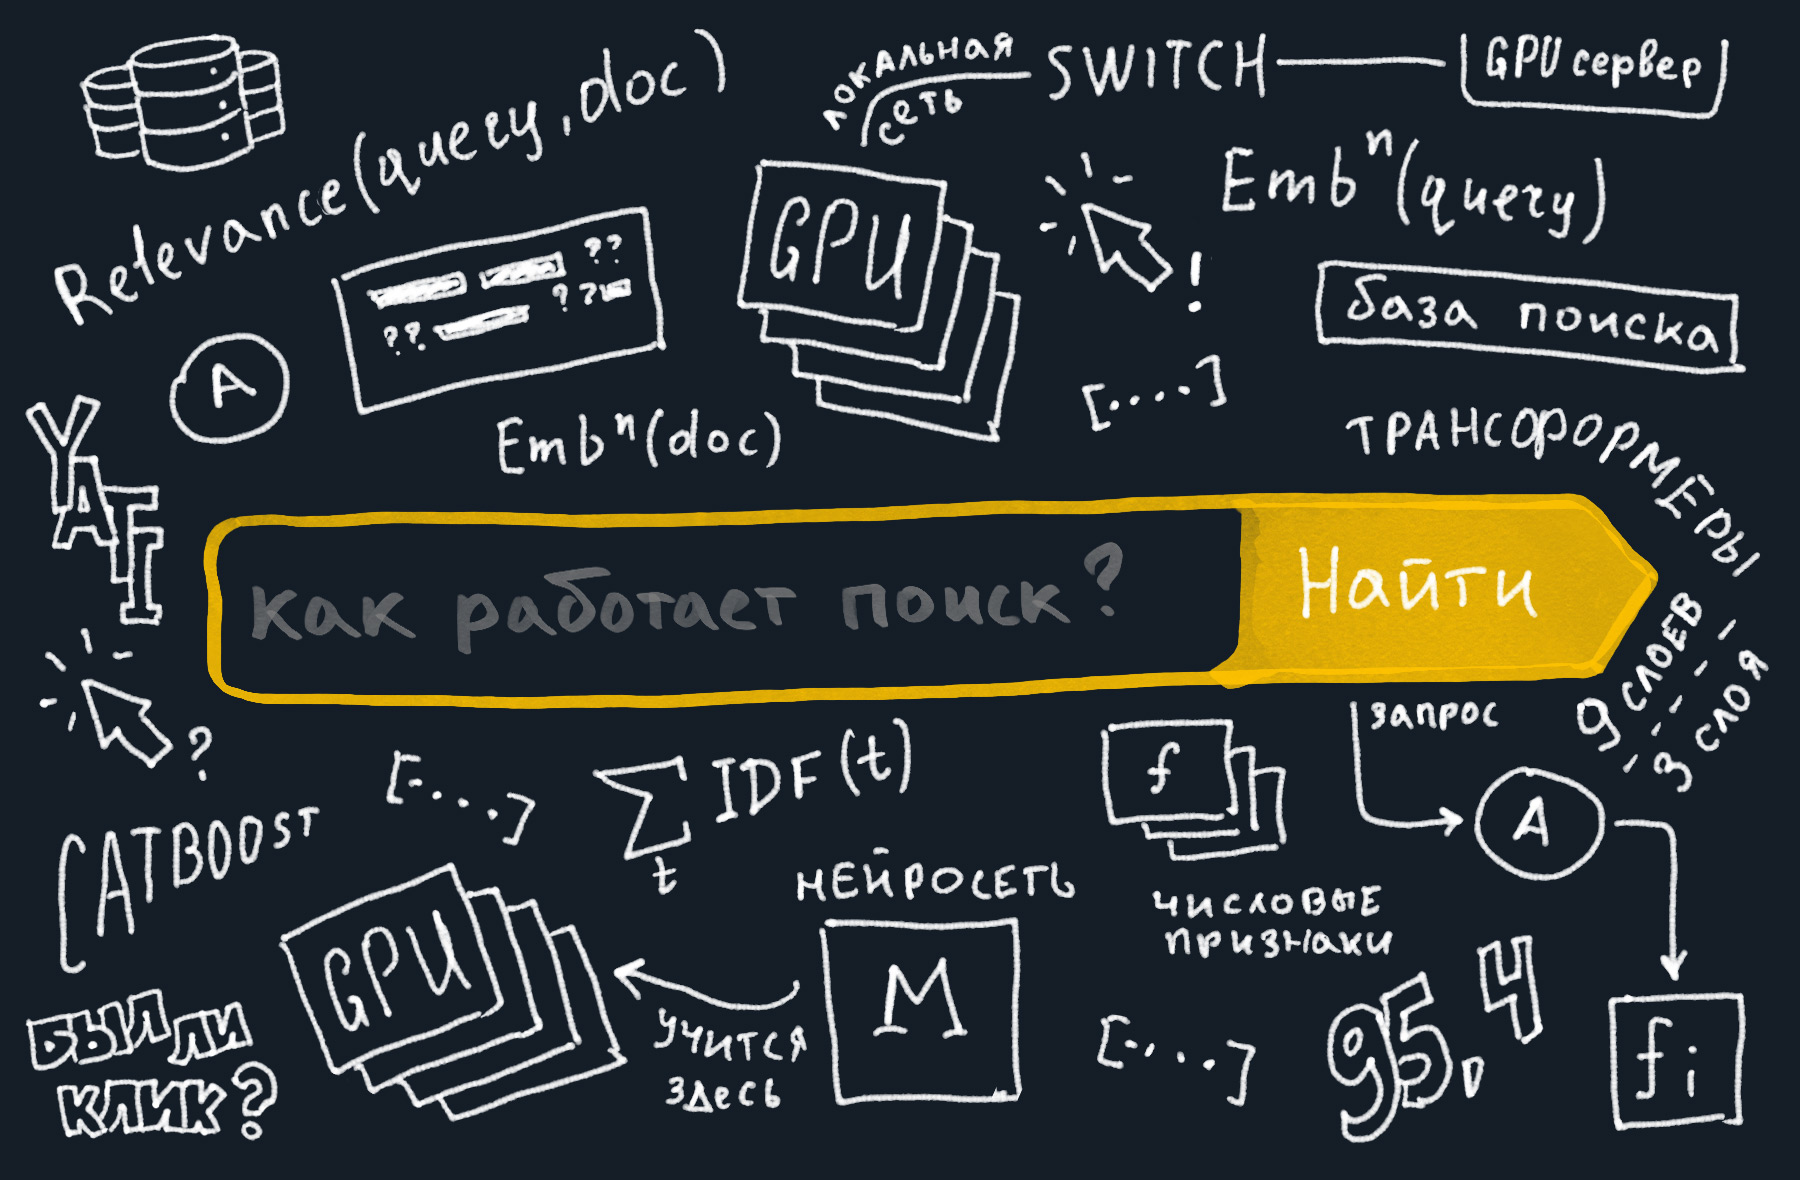 Relevance(query, doc)
локальная
сеть
SWITCH
GPU сервер
Embⁿ(query)
GPU
!
?? 
??
??
база поиска
A
[....]
Embⁿ(doc)
ТРАНСФОРМЕРЫ
9 СЛОЕВ
3 СЛОЯ
YATI
как работает поиск?
Найти
запрос
?
[....]
∑ IDF(t)
t
f
A
CATBOOST
НЕЙРОСЕТЬ
ЧИСЛОВЫЕ
ПРИЗНАКИ
GPU
M
УЧИТСЯ
ЗДЕСЬ
[....]
95,4
fi
БЫЛ ЛИ
КЛИК?